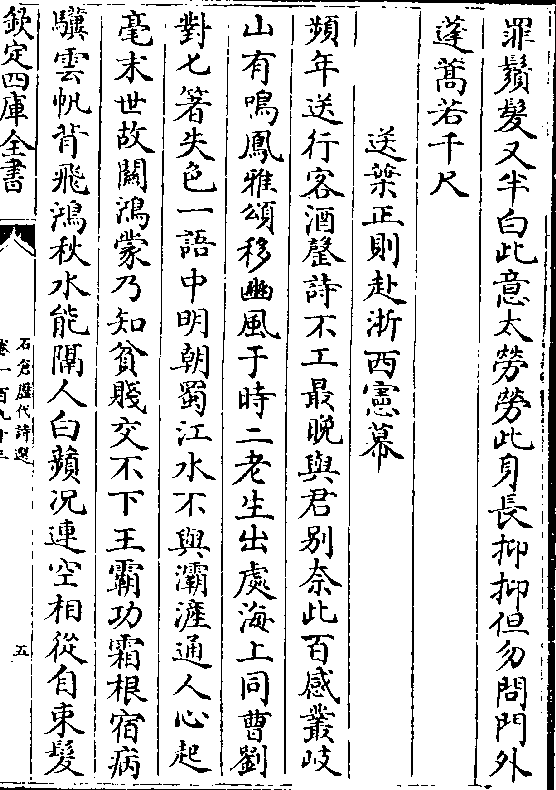 罪鬚髮又半白此意太勞勞此身長抑抑但勿問門外
蓬蒿若千尺
送葉正則赴浙西憲幕
頻年送行客酒罄詩不工最晚與君别奈此百感叢岐
山有鳴鳳雅頌移豳風于時二老生出處海上同曹劉
對七箸失色一語中明朝蜀江水不與灞滻通人心起
毫末世故闗鴻蒙乃知貧賤交不下王霸功霜根宿病
驥雲帆背飛鴻秋水能隔人白蘋况連空相從自束髮
欽定四庫全書
石倉歴代詩選
卷一百九十三
五